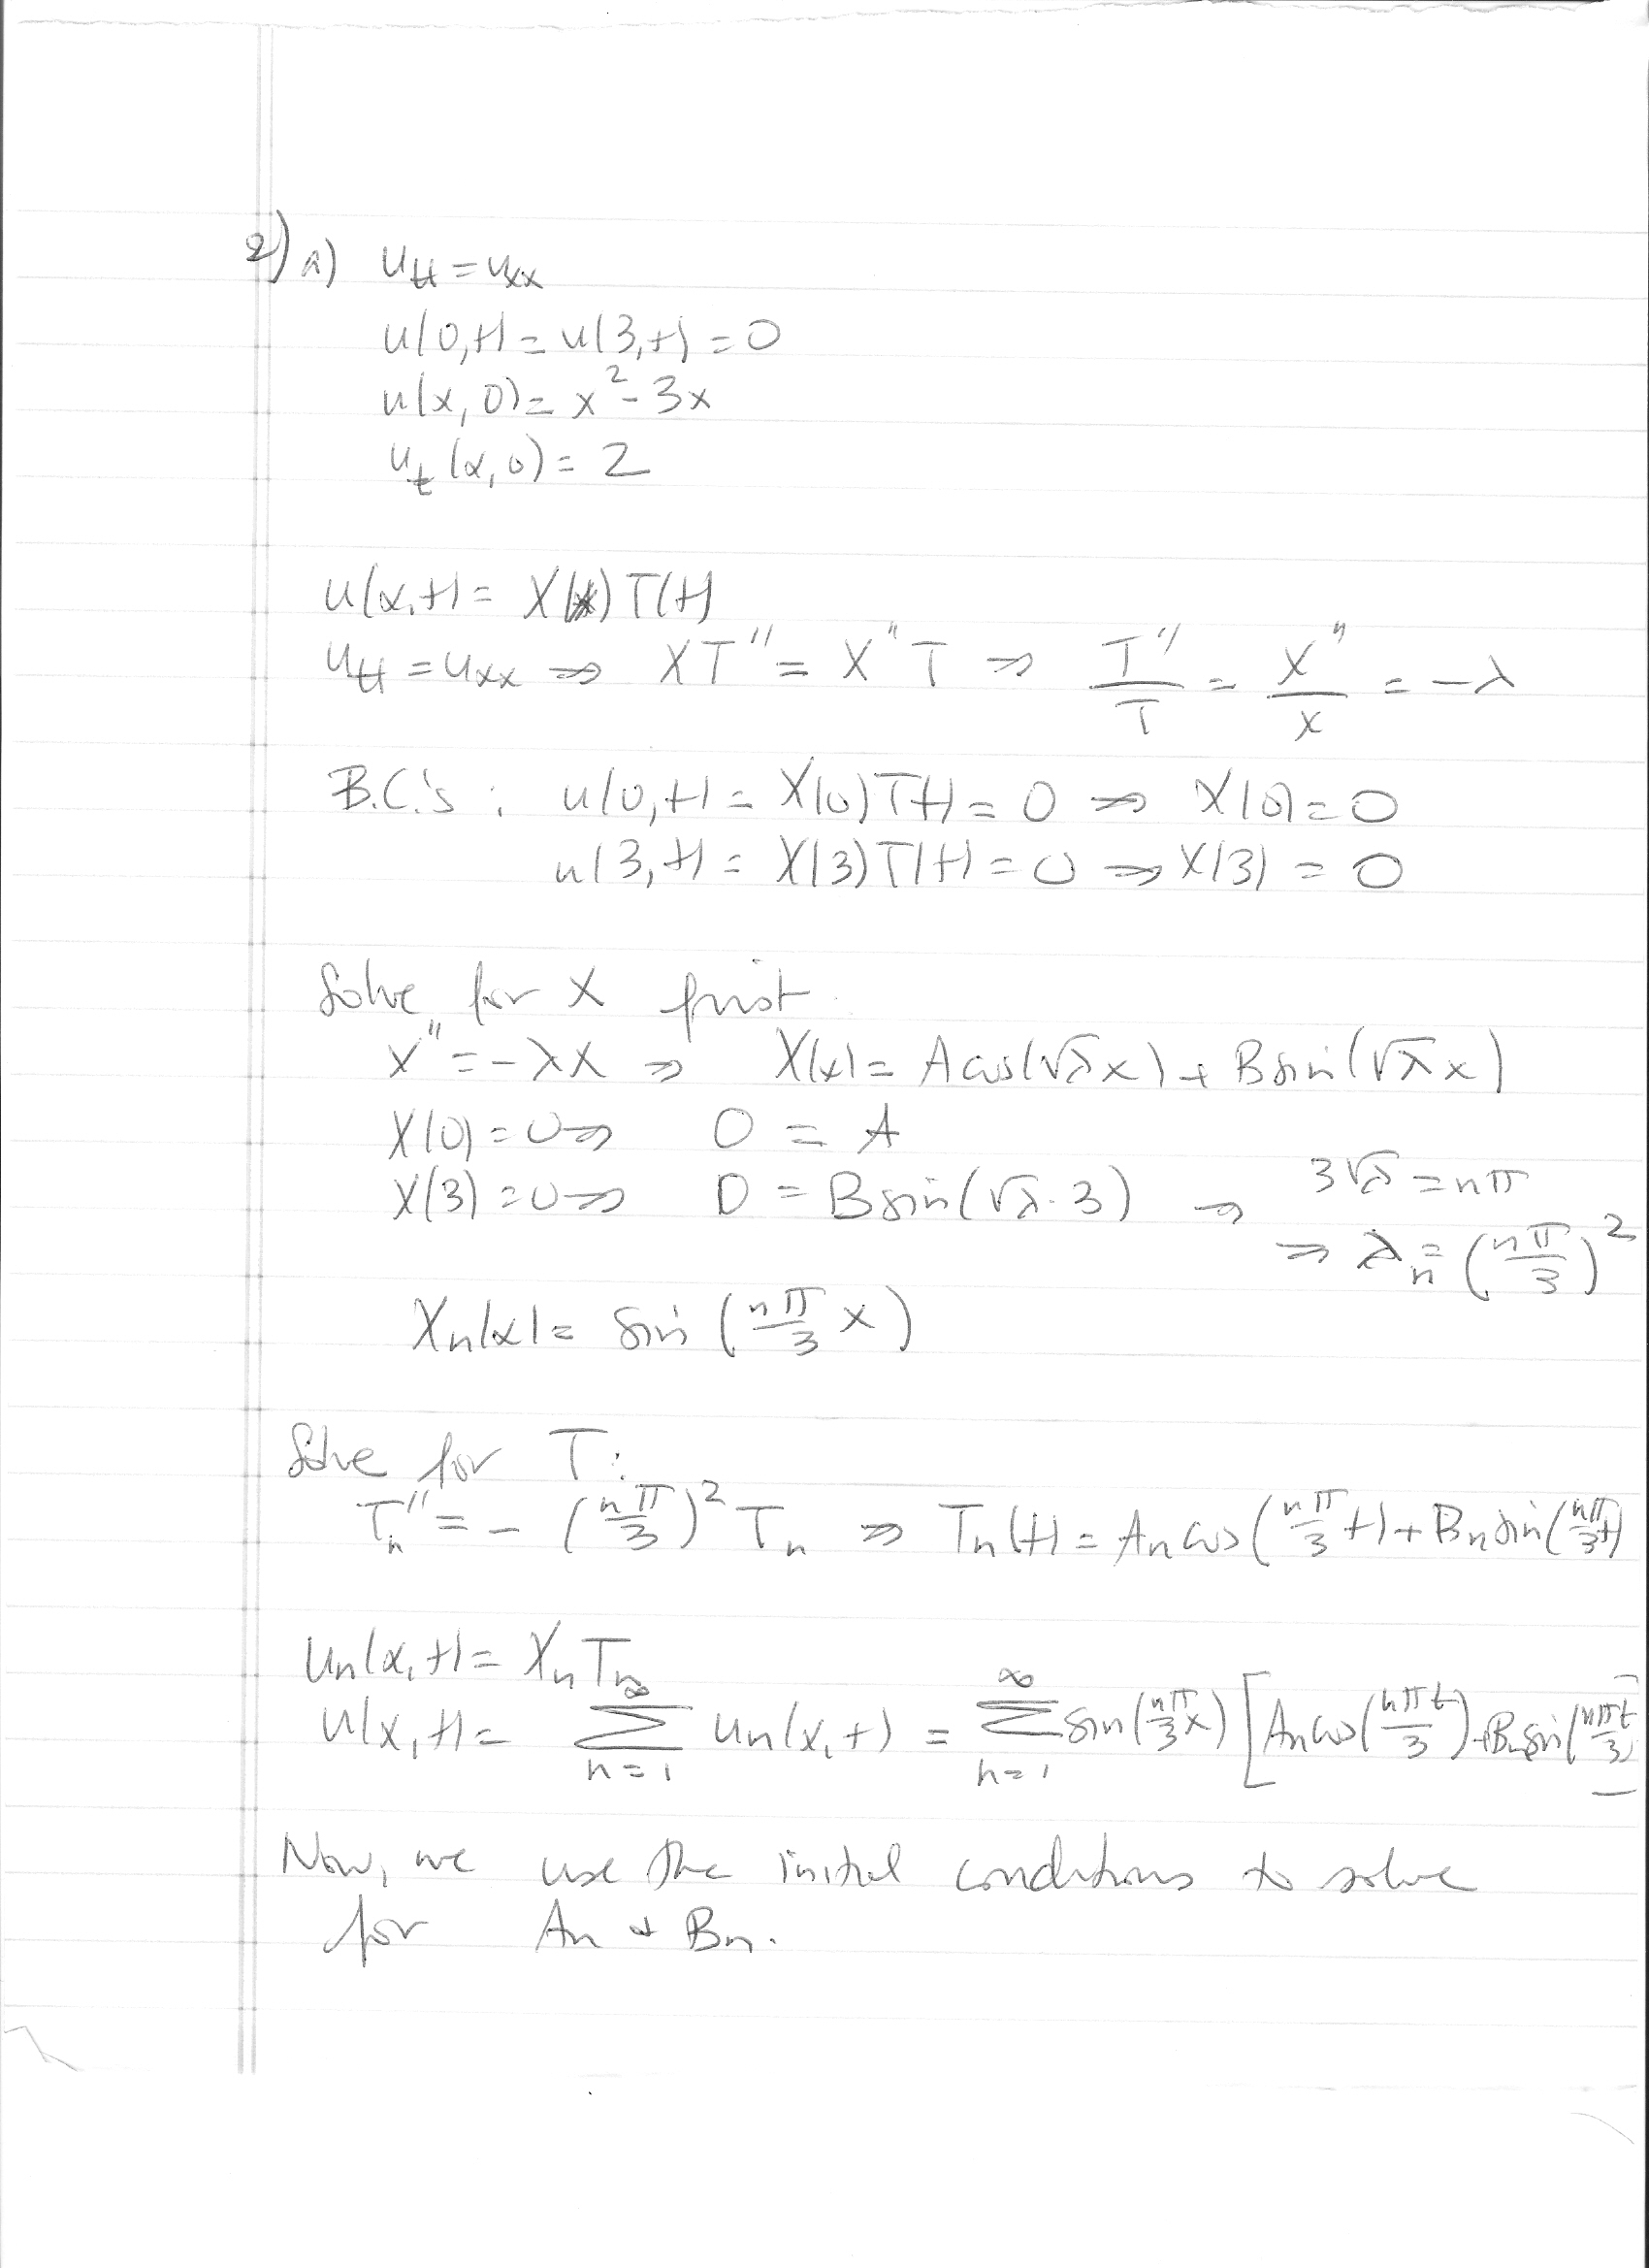 2) a) u_tt = u_xx
u(0,t) = u(3,t) = 0
u(x,0) = x² - 3x
u_t (x,0) = 2
u(x,t) = X(x) T(t)
u_tt = u_xx ⇒ XT'' = X''T ⇒ T''/T = X''/X = -λ
B.C.'s : u(0,t) = X(0)T(t) = 0 ⇒ X(0) = 0
u(3,t) = X(3)T(t) = 0 ⇒ X(3) = 0
Solve for X first.
X'' = -λX ⇒ X(x) = A cos(√λ x) + B sin(√λ x)
X(0) = 0 ⇒ 0 = A
X(3) = 0 ⇒ 0 = B sin(√λ · 3) ⇒ 3√λ = nπ
⇒ λ_n = (nπ/3)²
X_n(x) = sin (nπ/3 x)
Solve for T:
T_n'' = - (nπ/3)² T_n ⇒ T_n(t) = A_n cos(nπ/3 t) + B_n sin(nπ/3 t)
u_n(x,t) = X_n T_n
u(x,t) = ∑_{n=1}^∞ u_n(x,t) = ∑_{n=1}^∞ sin(nπ/3 x) [A_n cos(nπt/3) + B_n sin(nπt/3)]
Now, we use the initial conditions to solve
for A_n & B_n.